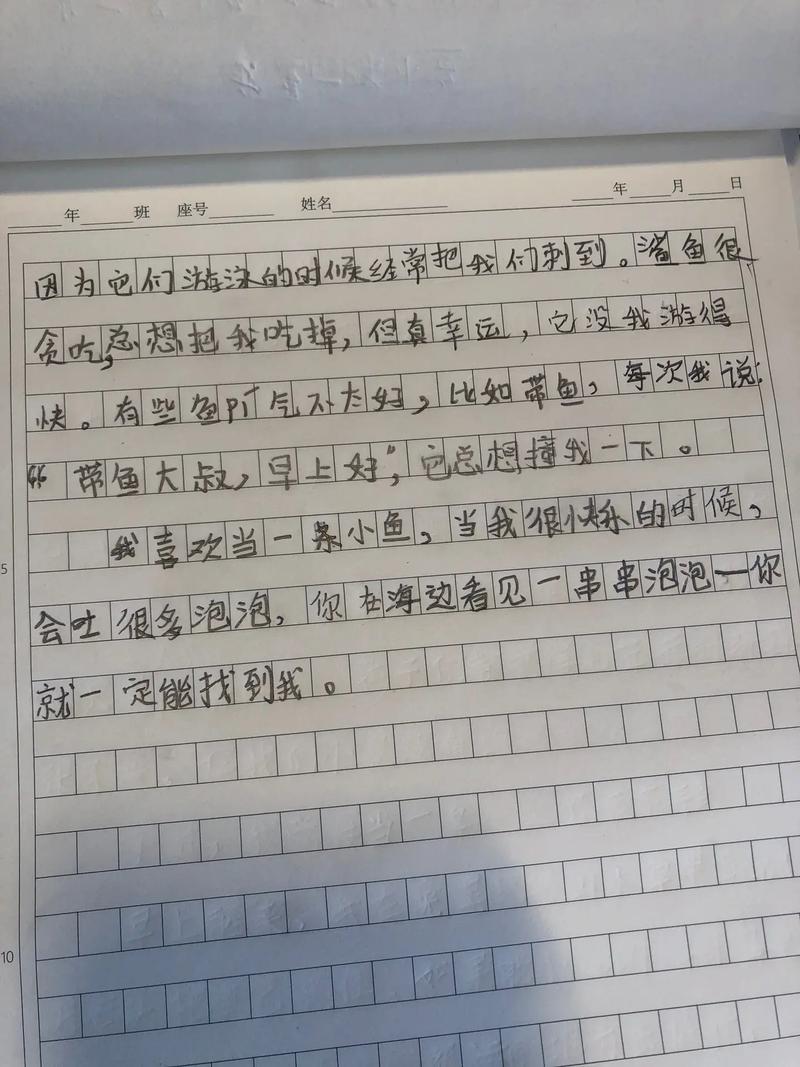 ____年____班 座号________ 姓名______________ ____年____月____日
因为它们游泳的时候经常把我们刺到。鲨鱼很
贪吃,总想把我吃掉,但真幸运,它没我游得
快。有些鱼脾气不太好,比如带鱼,每次我说:
“带鱼大叔,早上好”,它总想撞我一下。
我喜欢当一条小鱼,当我很快乐的时候,
5
会吐很多泡泡,你在海边看见一串串泡泡—你
就一定能找到我。
10